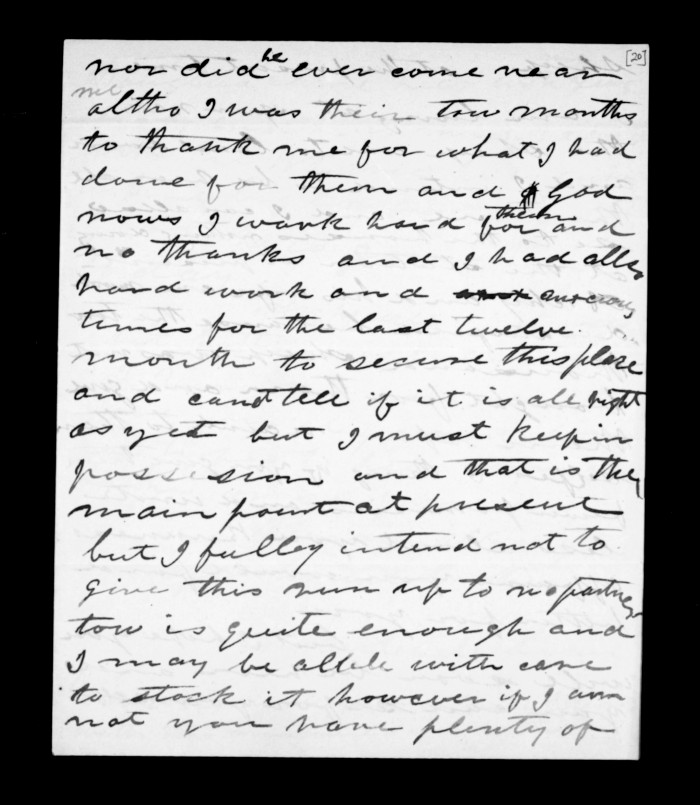 [20]
nor did he ever come near
me
altho I was their tow months
to thank me for what I had
done for them and God
nows I wark hard for them and
no thanks and I had all
hard work and anxious
times for the last twelve
month to secure this place
and candt tell if it is all right
as yet but I must keep in
possession and that is the
main point at present
but I fulley intend not to
give this run up to no partners
tow is quite enough and
I may be able with care
to stock it however if I am
not you have plenty of